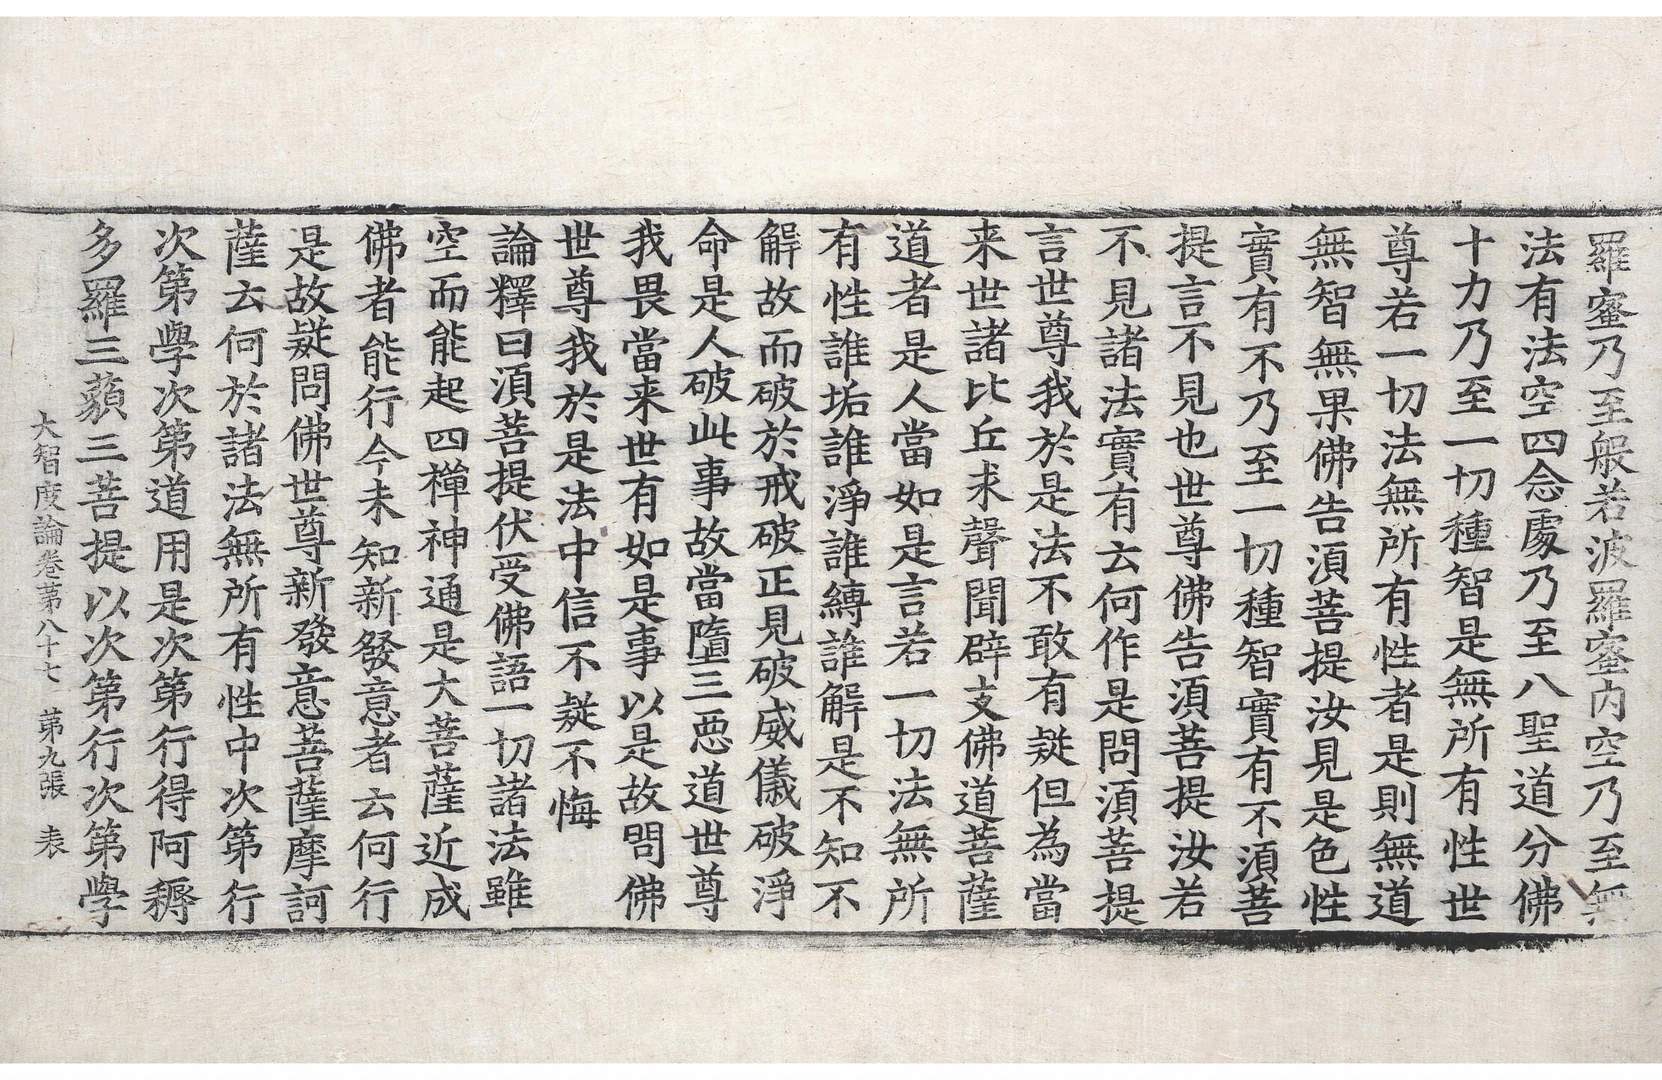 羅蜜乃至般若波羅蜜内空乃至無
法有法空四念處乃至八聖道分佛
十力乃至一切種智是無所有性世
尊若一切法無所有性者是則無道
無智無果佛告湏菩提汝見是色性
實有不乃至一切種智實有不湏菩
提言不見也世尊佛告湏菩提汝若
不見諸法實有云何作是問湏菩提
言世尊我於是法不敢有疑但為當
来世諸比丘求聲聞辟支佛道菩薩
道者是人當如是言若一切法無所
有性誰垢誰淨誰縛誰解是不知不
解故而破於戒破正見破威儀破淨
命是人破此事故當墮三惡道世尊
我畏當来世有如是事以是故問佛
世尊我於是法中信不疑不悔
論釋曰湏菩提伏受佛語一切諸法雖
空而能起四禪神通是大菩薩近成
佛者能行今未知新發意者云何行
是故疑問佛世尊新發意菩薩摩訶
薩云何於諸法無所有性中次第行
次第學次第道用是次第行得阿耨
多羅三藐三菩提以次第行次第學
大智度論卷第八十七 第九張 表